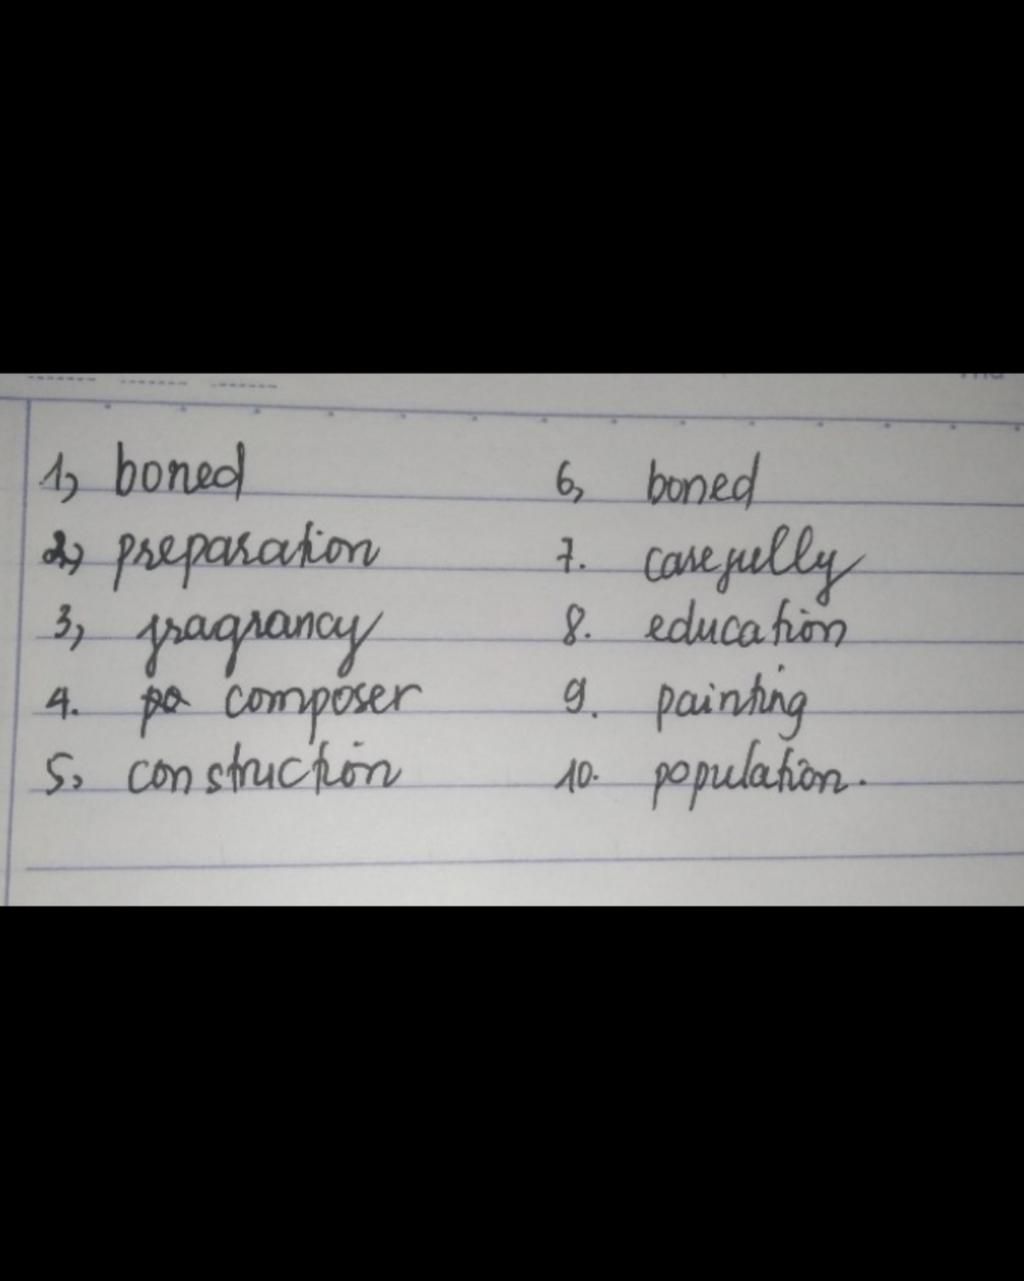 1, boned
2, preparation
3, fragrancy
4. composer
5, construction
6, boned
7. carefully
8. education
9. painting
10. population.